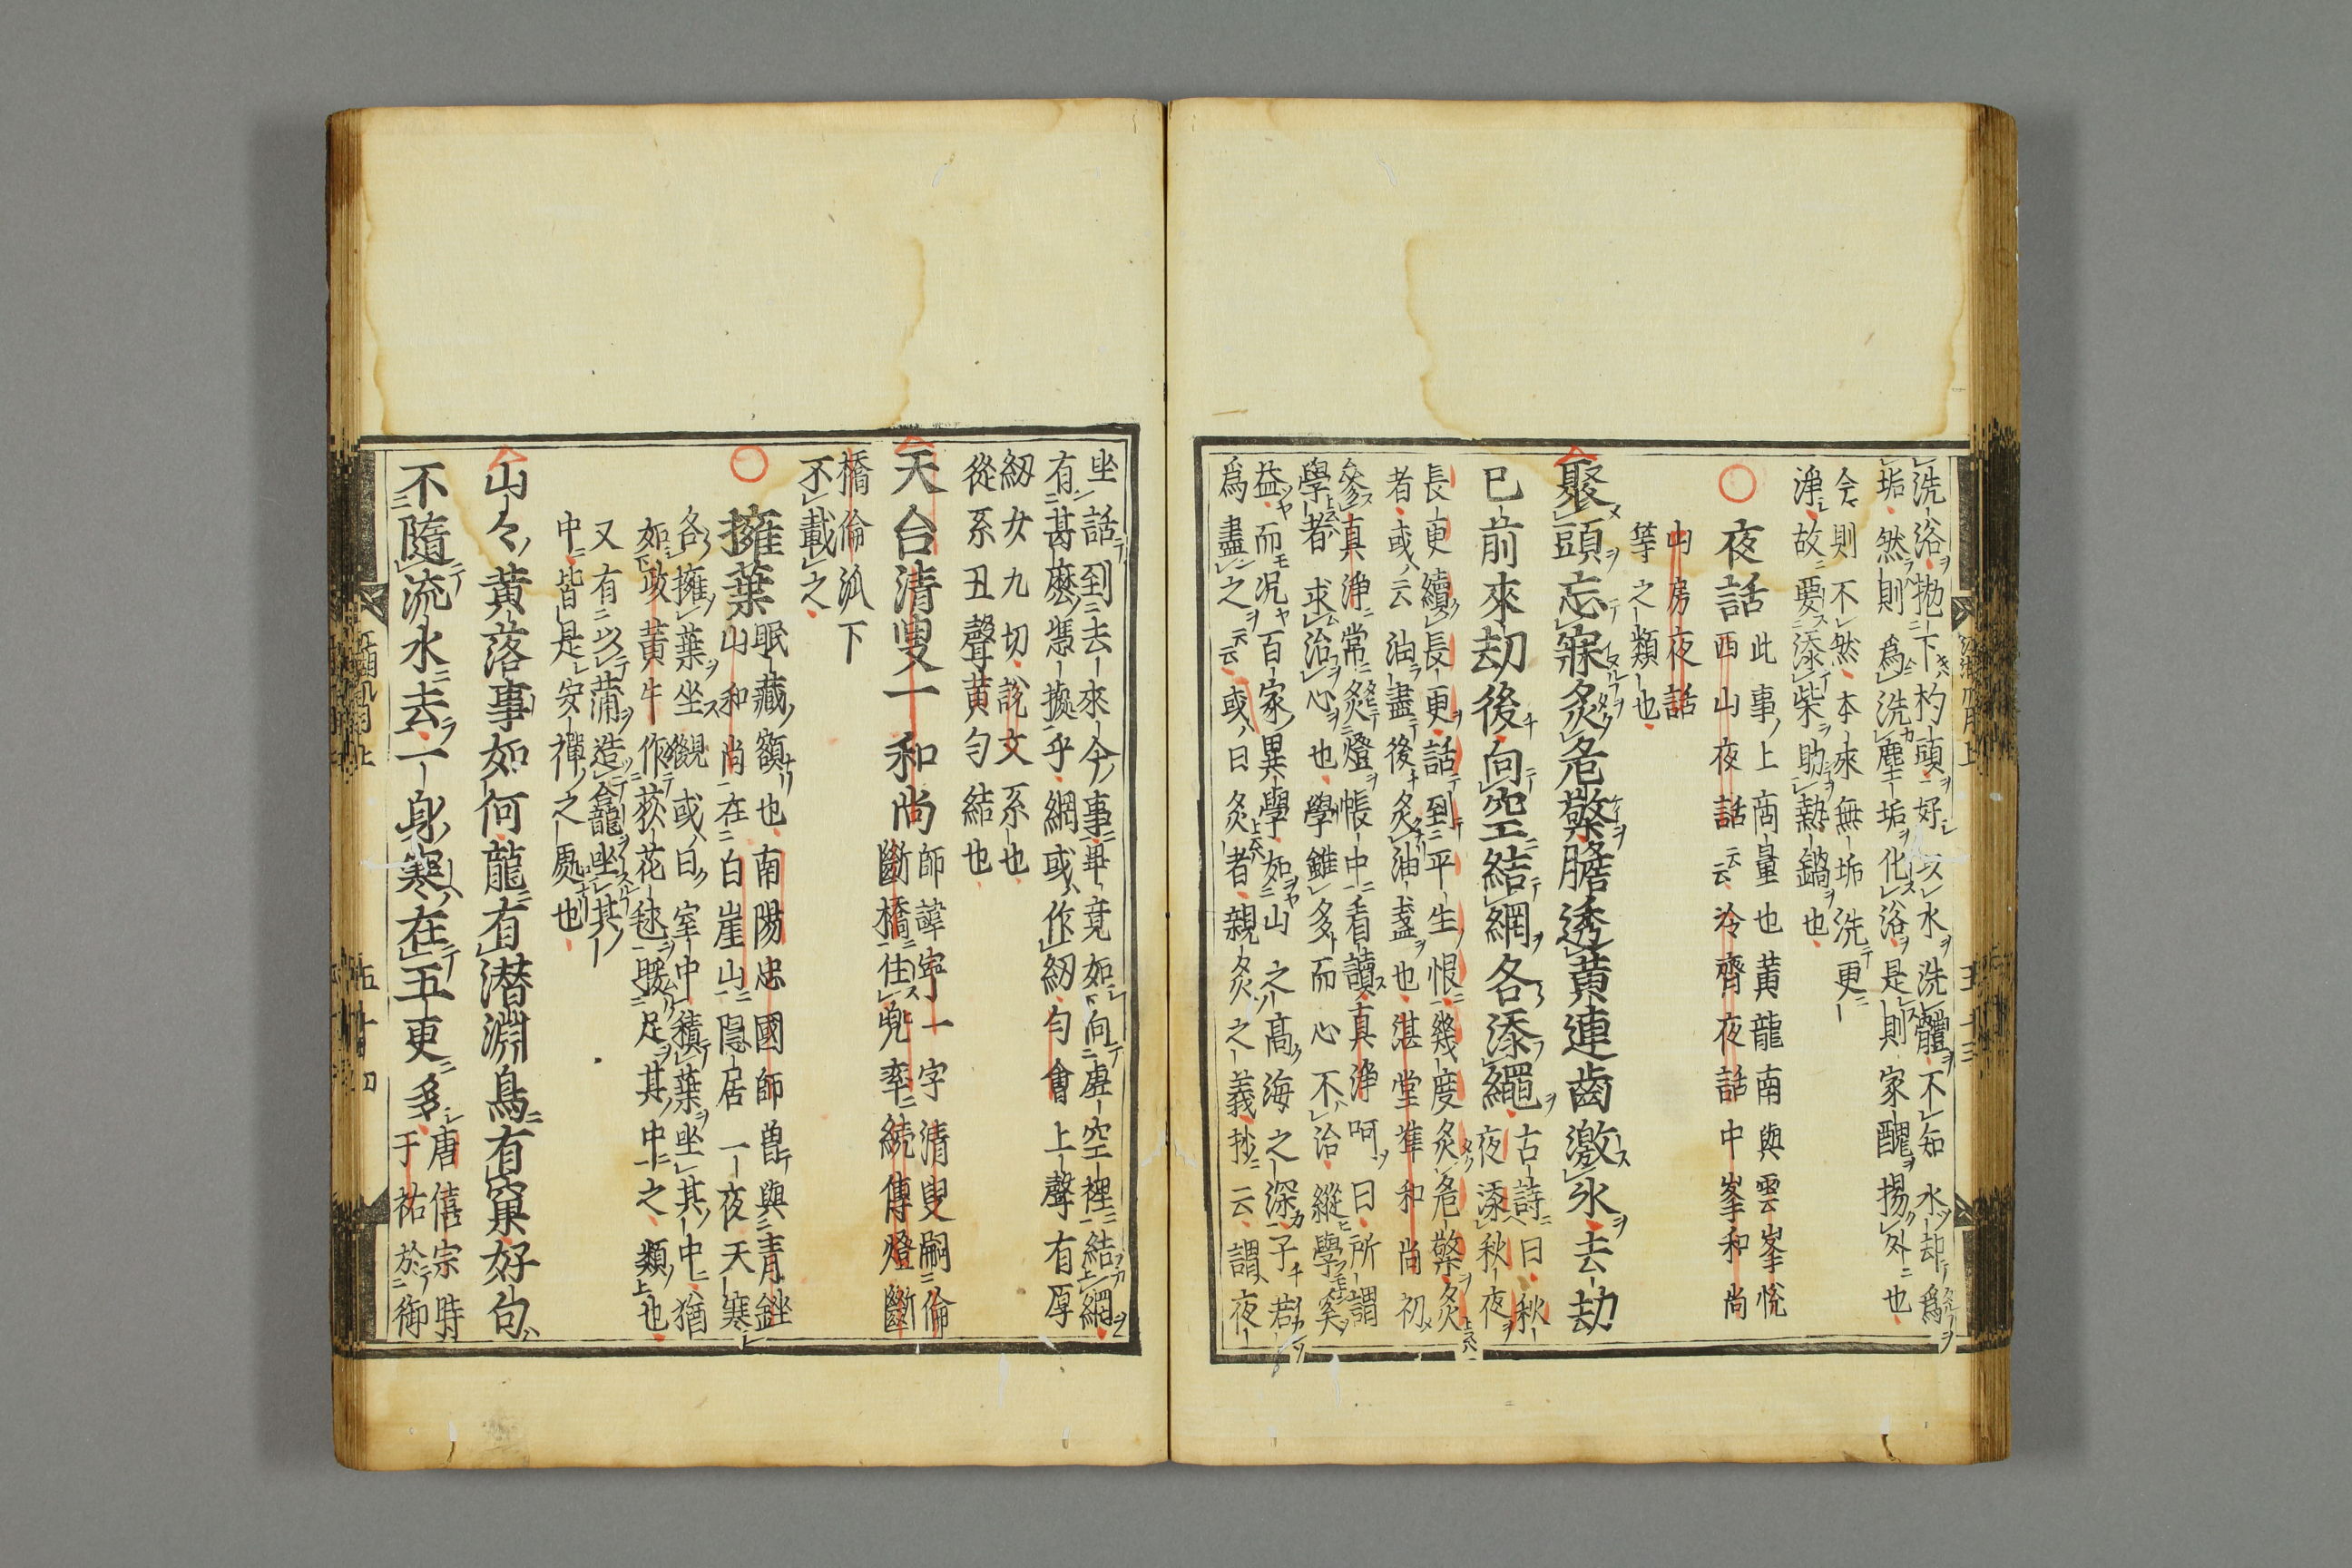 洗浴抛下杓頭好以水洗體不知水却爲
垢然則爲洗塵垢化浴是則家醜揚外也
今則不然本來無垢洗更
淨故要添柴助熱鍋也
夜話
此事上商量也黄龍南與雲峯悅
西山夜話云云冷齊夜話中峯和尚
山房夜話
等之類也
聚頭忘寐炙危檠膽透黄連齒激氷去劫
已前來劫後向空結網各添繩
古詩曰秋
夜添秋夜
長更續長更話到平生恨幾度炙危檠炙
者或云油盡後炙油盞也湛堂準和尚初
參真淨常炙燈帳中看讀真淨呵曰所謂
學者求治心也學雖多而心不治縱學奚
益而况百家異學如山之高海之深子若
爲盡之云云或曰炙者親炙之義抄云謂夜
坐話到去來今事畢竟如向虚空裡結網
有甚麽憑擬乎網或作紉勻會上聲有厚
紉女九切說文系也
從系丑聲黄勻結也
天台清叟一和尚
師諱寧一字清叟嗣倫
斷橋住兜率続傳燈斷
橋倫派下
不載之
擁葉
眠藏額也南陽忠國師曽與青銼
山和尚在白崖山隠居一夜天寒
各擁葉坐觀或曰室中積葉坐其中猶
如政黄牛作荻花毬暖足其中之類也
又有以蒲造龕坐其
中皆是安禪之處也
山々黄落事如何龍有潜淵鳥有窠好句
不隨流水去一身寒在五更多
唐僖宗時
于祐於御
五十三